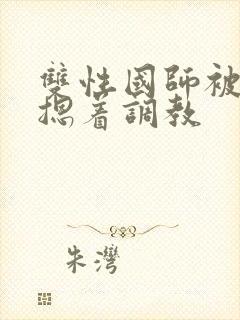 雙性國師被
摁着調教
朱灣